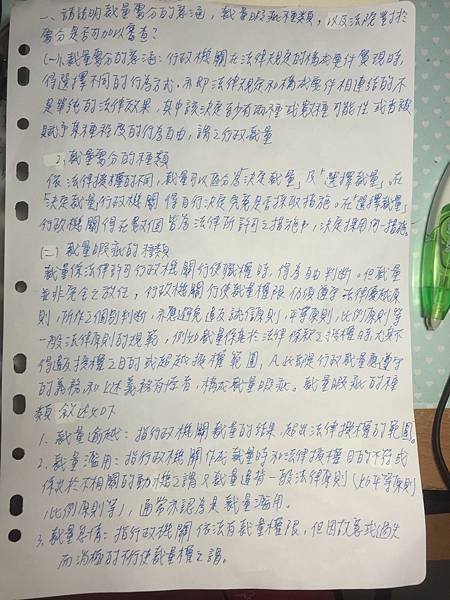 一、請說明裁量處分的意涵，裁量瑕疵種類，以及法院對於
處分是否可加以審查？
(一)1.裁量處分的意涵：行政機關在法律規定的構成要件實現時，
得選擇不同的行為方式。亦即法律規定和構成要件相連結的不
是單純的法律效果，其中該決定至少有兩種或數種可能性或者被
賦予某種程度的行為自由，謂之行政裁量
2.裁量處分的種類
依法律授權的不同，裁量可以區分為「決定裁量」及「選擇裁量」。在
「決定裁量」行政機關得自行決定究竟是否採取措施。在「選擇裁量」
行政機關得在數個皆為法律所許可之措施中，決定採用何一措施。
(二)裁量瑕疵的種類
裁量係法律許可行政機關行使職權時，得為自由判斷。但裁量
並非完全之放任，行政機關行使裁量權限仍須遵守法律優越原
則，所作之個別判斷，亦應避免違反誠信原則，平等原則，比例原則等
一般法律原則的規範，例如裁量係基於法律條款之授權時，尤其不
得違反授權之目的或超越授權範圍，凡此皆限行政裁量應遵守
的義務，如上述義務有悖者，構成裁量瑕疵。裁量瑕疵的種
類敘述如下
1.裁量逾越：指行政機關裁量的結果，超出法律授權的範圍。
2.裁量濫用：指行政機關作成裁量時和法律授權目的不符或
係出於不相關的動機之謂，又裁量違背一般法律原則(如平等原則
，比例原則等)，通常亦認為是裁量濫用。
3.裁量怠惰：指行政機關依法有裁量權限，但因故意或過失
而消極的不行使裁量權之謂。